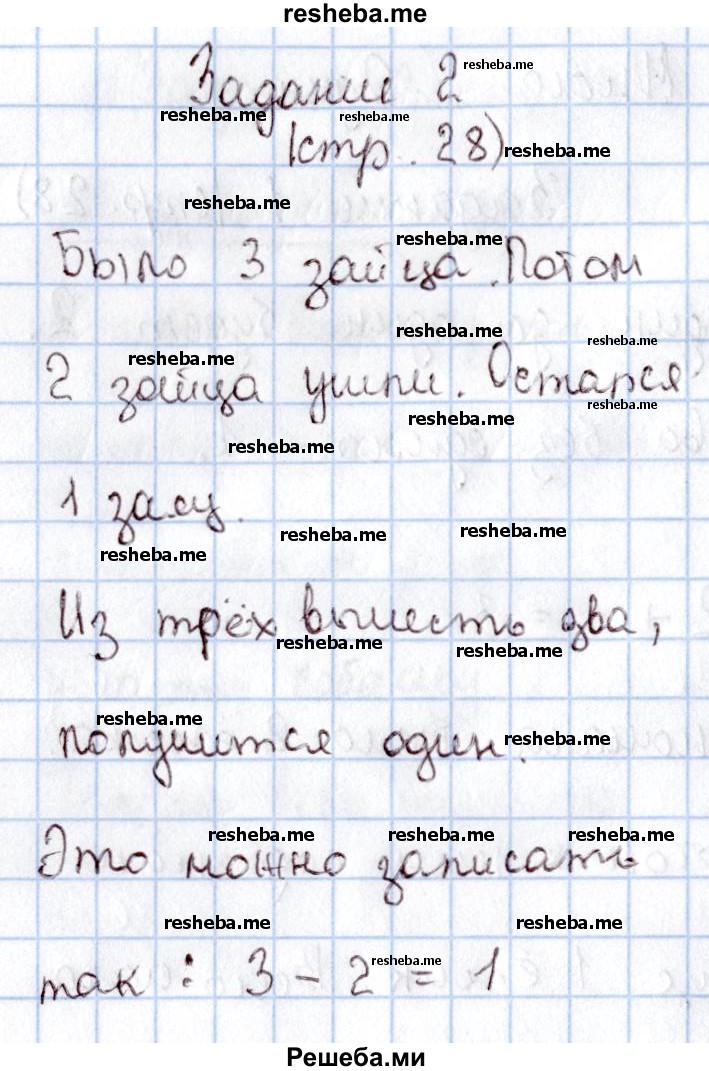 resheba.me
Задание 2 resheba.me
resheba.me resheba.me
(стр. 28) resheba.me
resheba.me
resheba.me
Было 3 зайца. Потом
resheba.me resheba.me
resheba.me
2 зайца ушли. Остался
resheba.me
resheba.me
resheba.me
1 заяц.
resheba.me resheba.me
resheba.me
Из трёх вычесть два,
resheba.me
resheba.me
resheba.me
получится один. resheba.me
resheba.me resheba.me resheba.me
Это можно записать
resheba.me resheba.me
так: 3 - 2 = 1
resheba.me
Решеба.ми